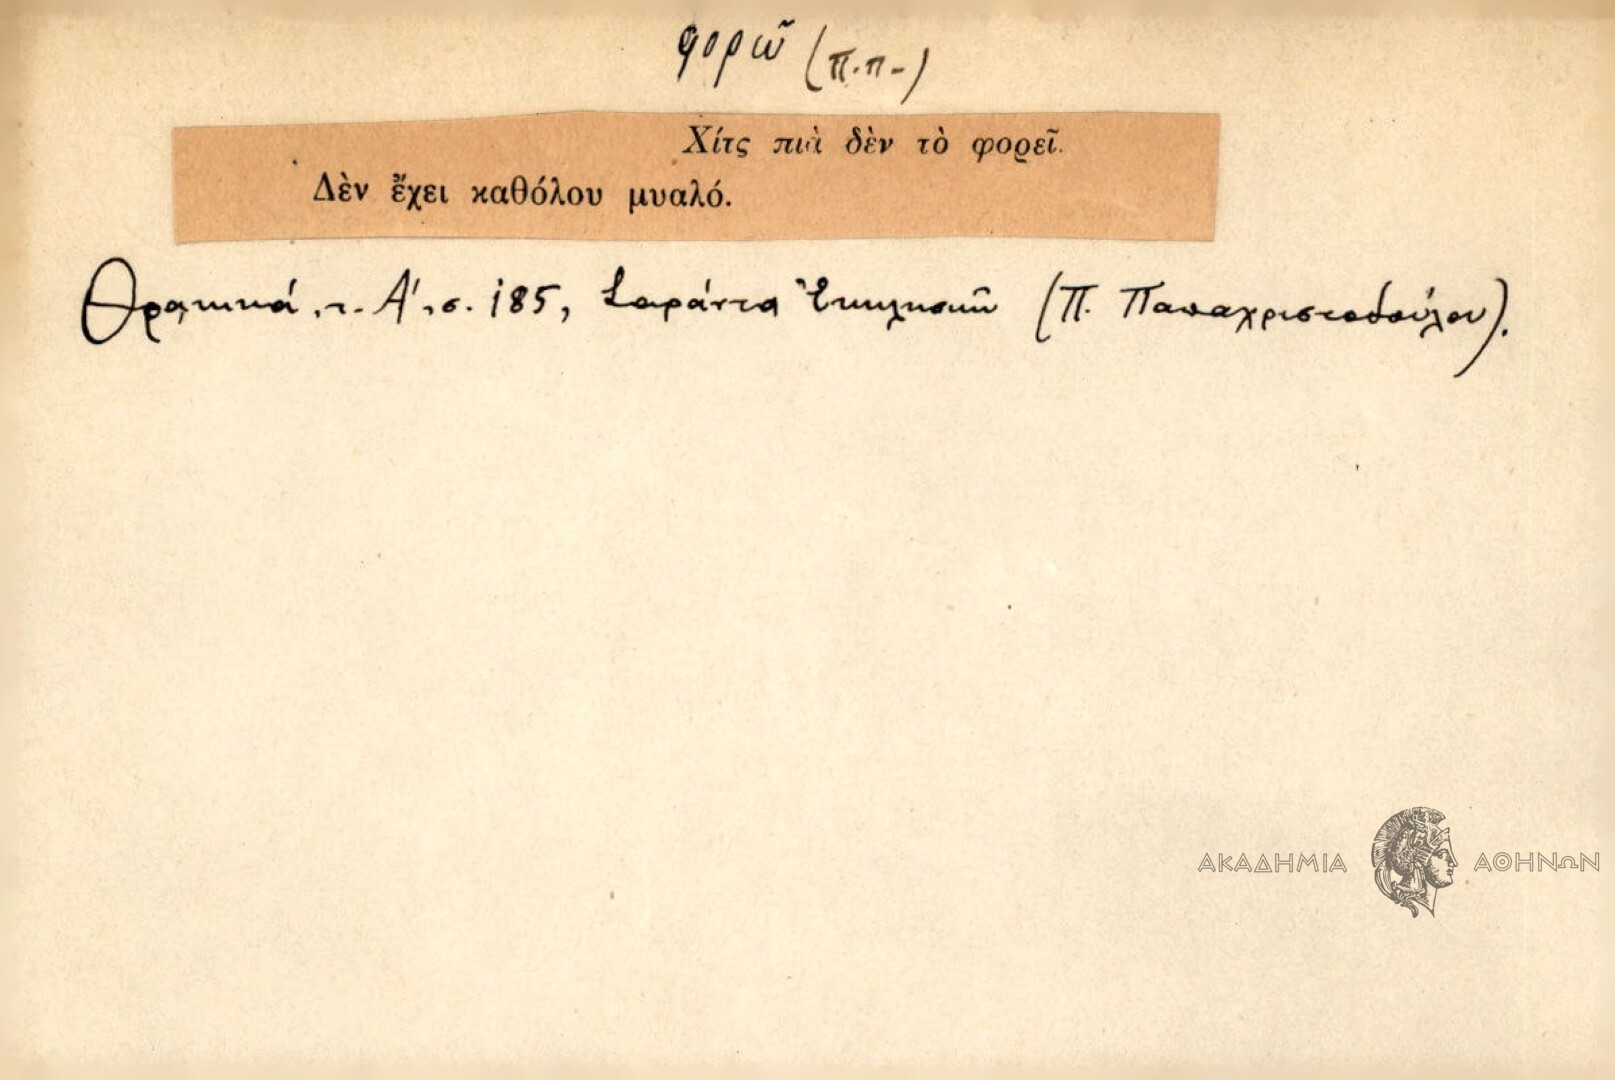 φορῶ (π.π.)
Χίτς πιὰ δὲν τὸ φορεῖ.
Δὲν ἔχει καθόλου μυαλό.
Θρακικά, τ. Α', σ. 185, Σαράντα Ἐκκλησιῶν (Π. Παπαχριστοδούλου).
ΑΚΑΔΗΜΙΑ ΑΘΗΝΩΝ